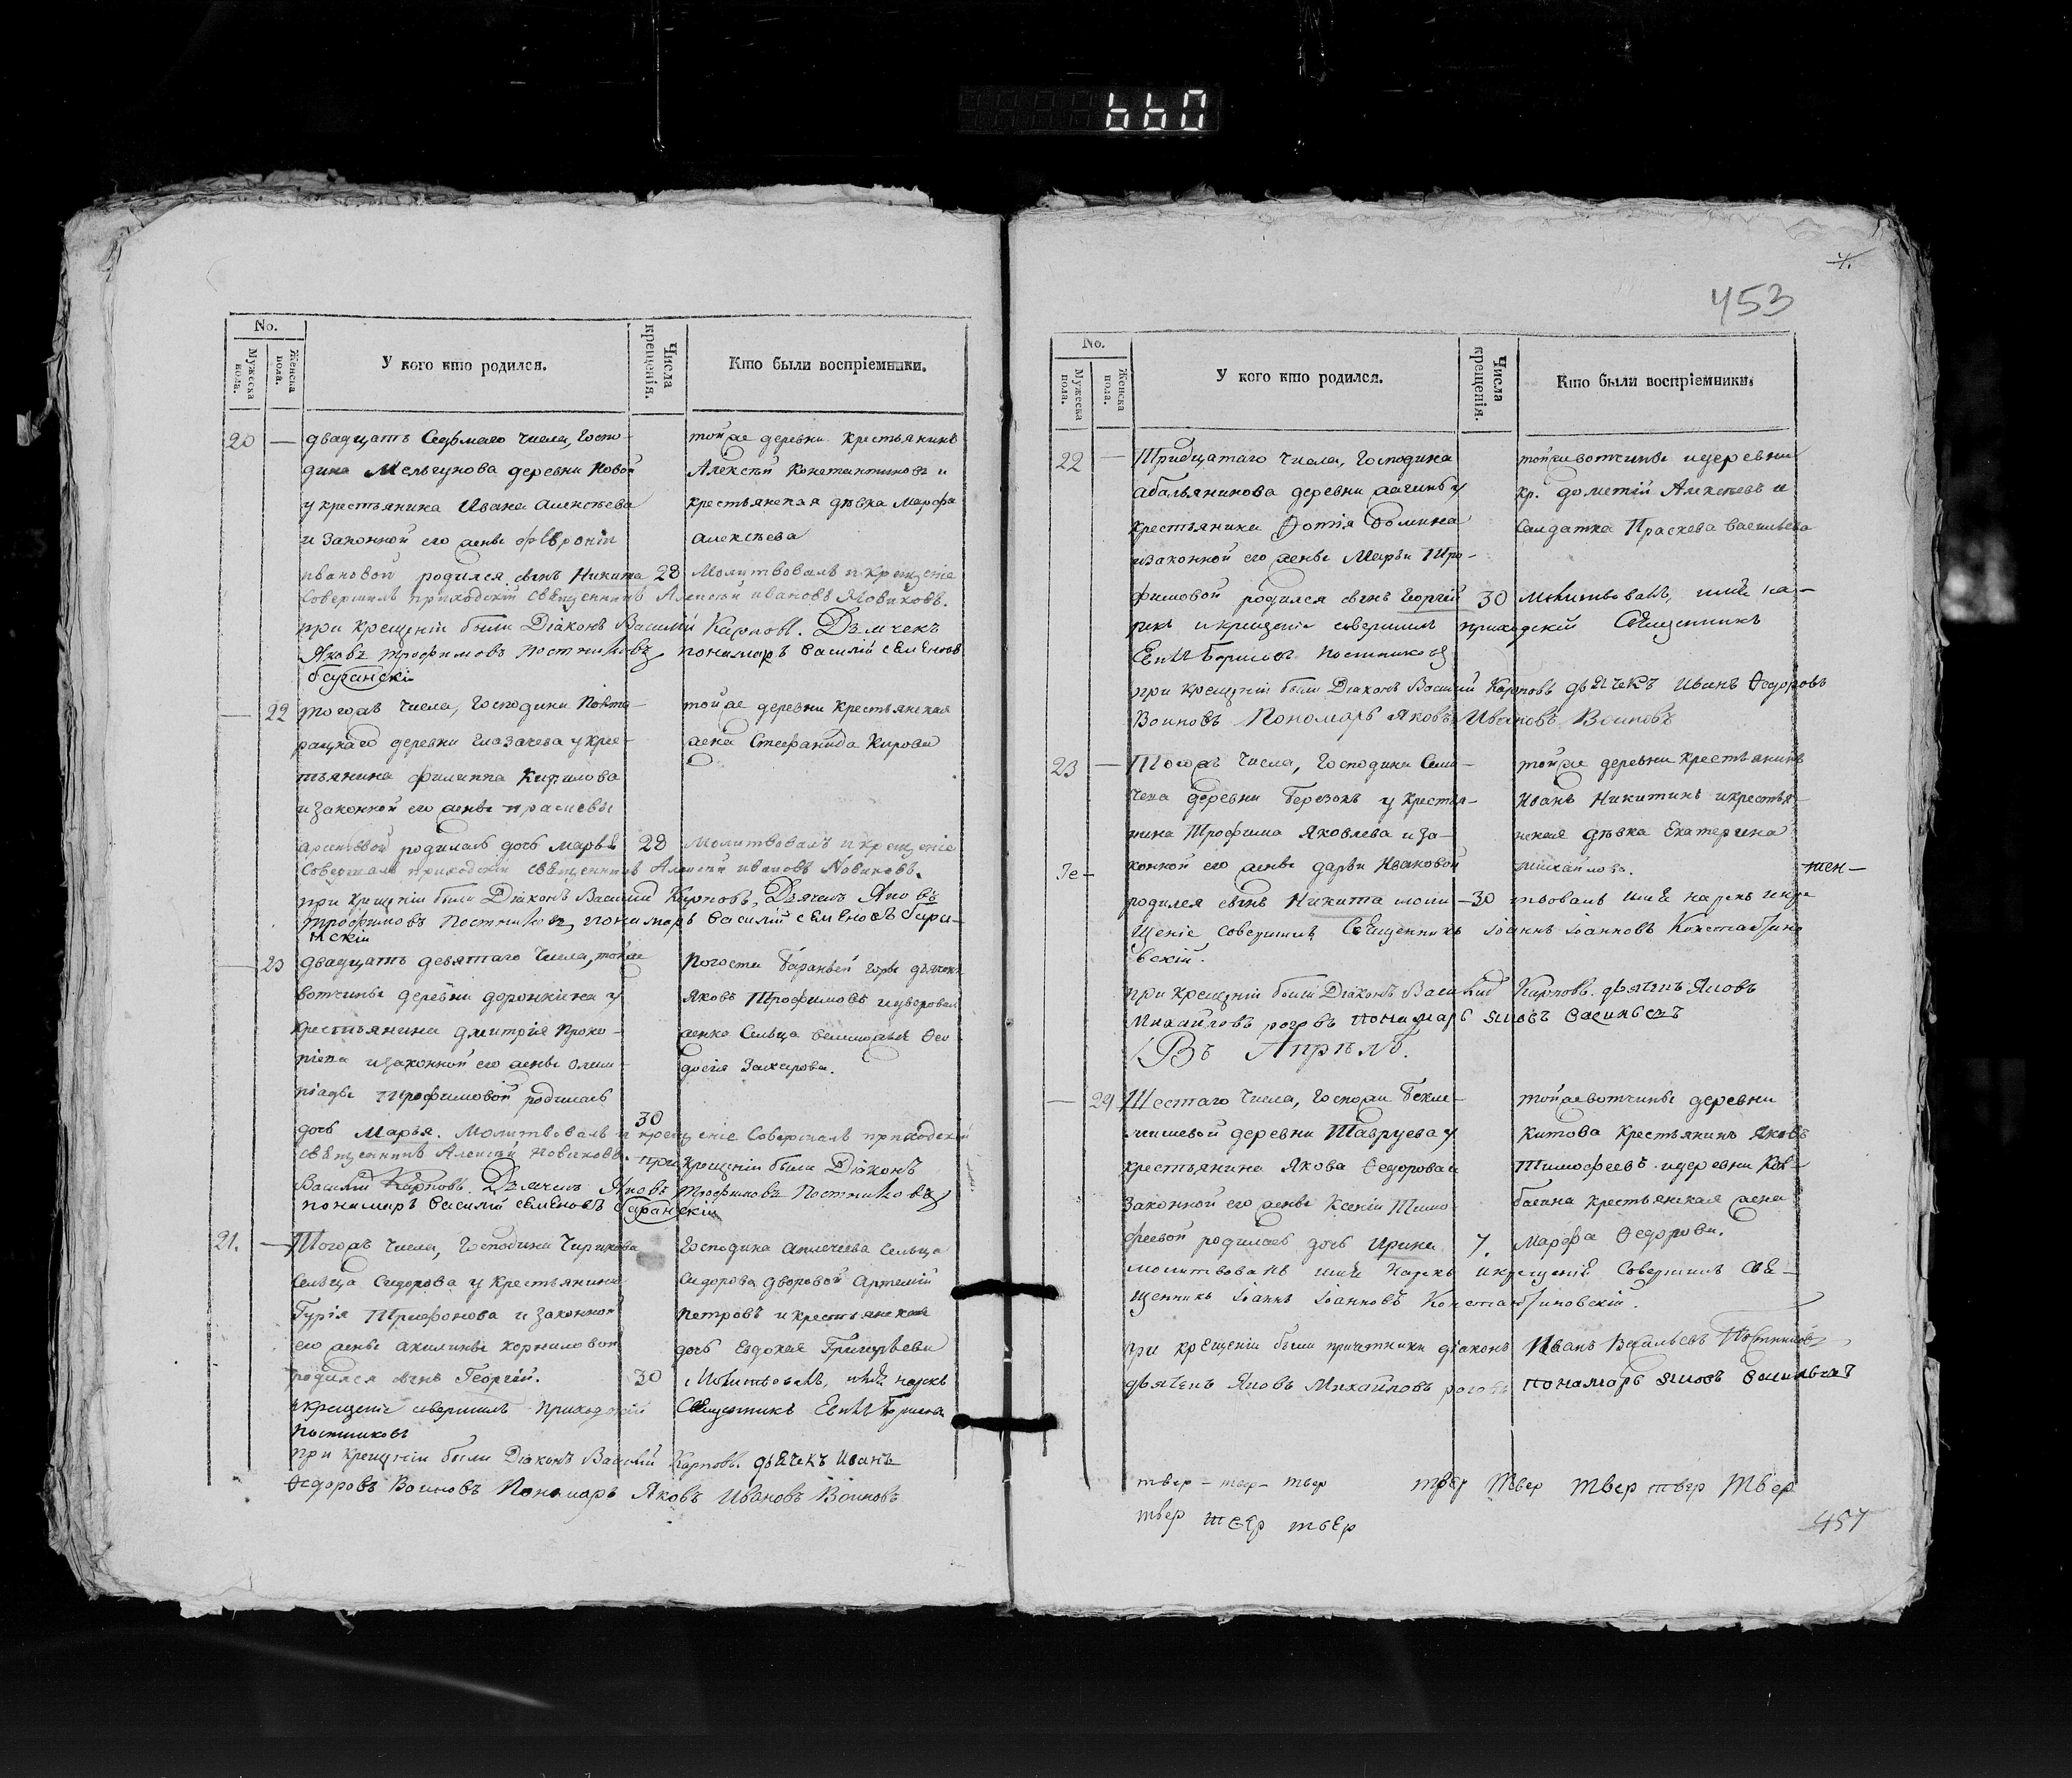 660
No.
Мужеска пола.
Женска пола.
У кого кто родился.
Числа крещенія.
Кто были воспріемники.
20 — двадцать Седмаго числа, Госпо-
дина Мельгунова деревни Новой
у крестьянина Ивана Алексѣева
и законной его жены Февроніи
Ивановой родился сынъ Никита 28
тойже деревни крестьянинъ
Алексѣй Константиновъ и
крестьянская дѣвка Марфа
Алексѣева
Молитвовалъ и крещеніе
совершилъ приходскій священникъ Алексѣй Ивановъ Новиковъ.
при крещеніи были Діаконъ Василій Карповъ. Дьячекъ
Яковъ Трофимовъ Постниковъ, пономарь Василій Семеновъ
— 22 тогожъ числа, Господина
деревни Глазачева у крес-
тьянина Филиппа Кирилова
и законной его жены Прасковьи
родилась дочь Марья 28
тойже деревни крестьянская
жена Стефанида Кирова
Молитвовалъ и крещеніе
совершалъ приходскій священникъ Алексѣй Ивановъ Новиковъ.
при крещеніи были Діаконъ Василій Карповъ, Дьячекъ Яковъ
Трофимовъ Постниковъ, пономарь Василій Семеновъ
— 23 двадцать девятаго числа, тойже
вотчины деревни Доронкина у
крестьянина Дмитрія Проко-
піева и законной его жены Олим-
піады Трофимовой родилась
Погоста Бараньей горы дьячекъ
Яковъ Трофимовъ и дворовая
женка Сельца Ѳео-
досія Захарова.
30
дочь Марья. Молитвовалъ и крещеніе совершалъ приходскій
священникъ Алексѣй Новиковъ. при крещеніи были Діаконъ
Василій Карповъ. Дьячекъ Яковъ Трофимовъ Постниковъ
пономарь Василій Семеновъ
21. — Тогожъ числа, Господина Чирикова
Сельца Сидорова у крестьянина
Гурія Трифонова и законной
его жены Акилины Корниловой
родился сынъ Георгій. 30
Господина Сельца
Сидорова дворовой Артемій
Петровъ и крестьянская
дочь Евдокея Григорьева
Молитвовалъ, имя нарекъ
и крещеніе совершилъ приходскій Священникъ
Постниковъ
при крещеніи были Діаконъ Василій Карповъ. дьячекъ Иванъ
Ѳедоровъ Воиновъ Пономарь Яковъ Ивановъ Воиновъ
453
No.
Мужеска пола.
Женска пола.
У кого кто родился.
Числа крещенія.
Кто были воспріемники.
22 — Тридцатаго числа, Господина
Абальянинова деревни у
крестьянина Фотія Фомина
и законной его жены Марьи Тро-
фимовой родился сынъ Георгій 30
тойже вотчины и деревни
кр. Дометій Алексѣевъ и
Салдатка Праскева Васильева
Молитвовалъ, имя на-
рекъ и крещеніе совершилъ приходскій Священникъ
Постниковъ
при крещеніи были Діаконъ Василій Карповъ дьячекъ Иванъ Ѳедоровъ
Воиновъ Пономарь Яковъ Ивановъ Воиновъ
23 — Тогожъ числа, Господина
деревни Березокъ у крестья-
нина Трофима Яковлева и за-
конной его жены Дарьи Ивановой
родился сынъ Никита моли- 30
тойже деревни крестьянинъ
Иванъ Никитинъ и крестья-
нская дѣвка Екатерина
Михайлова.
твовалъ имя нарекъ и кре-
щеніе совершилъ Священникъ Іоаннъ Іоанновъ Константино
вскій.
при крещеніи были Діаконъ Василій Карповъ. дьячекъ Яковъ
Михайловъ пономарь Яковъ Васильевъ
Въ Апрѣлѣ.
— 24 Шестаго числа, Госпожи Бекле-
мишевой деревни Шавруева у
крестьянина Якова Ѳедорова и
законной его жены Ксеніи Тимо-
феевой родилась дочь Ирина 7.
тойже вотчины деревни
Китова крестьянинъ Яковъ
Тимофеевъ и деревни
крестьянская жена
Марфа Ѳедорова.
молитвовалъ имя нарекъ и крещеніе совершилъ Свя-
щенникъ Іоаннъ Іоанновъ Константиновскій.
при крещеніи были причетники діаконъ Иванъ Васильевъ Постниковъ,
дьячекъ Яковъ Михайловъ пономарь Яковъ Васильевъ
твер - твер - твер твер твер твер твер твер
твер твер твер
457